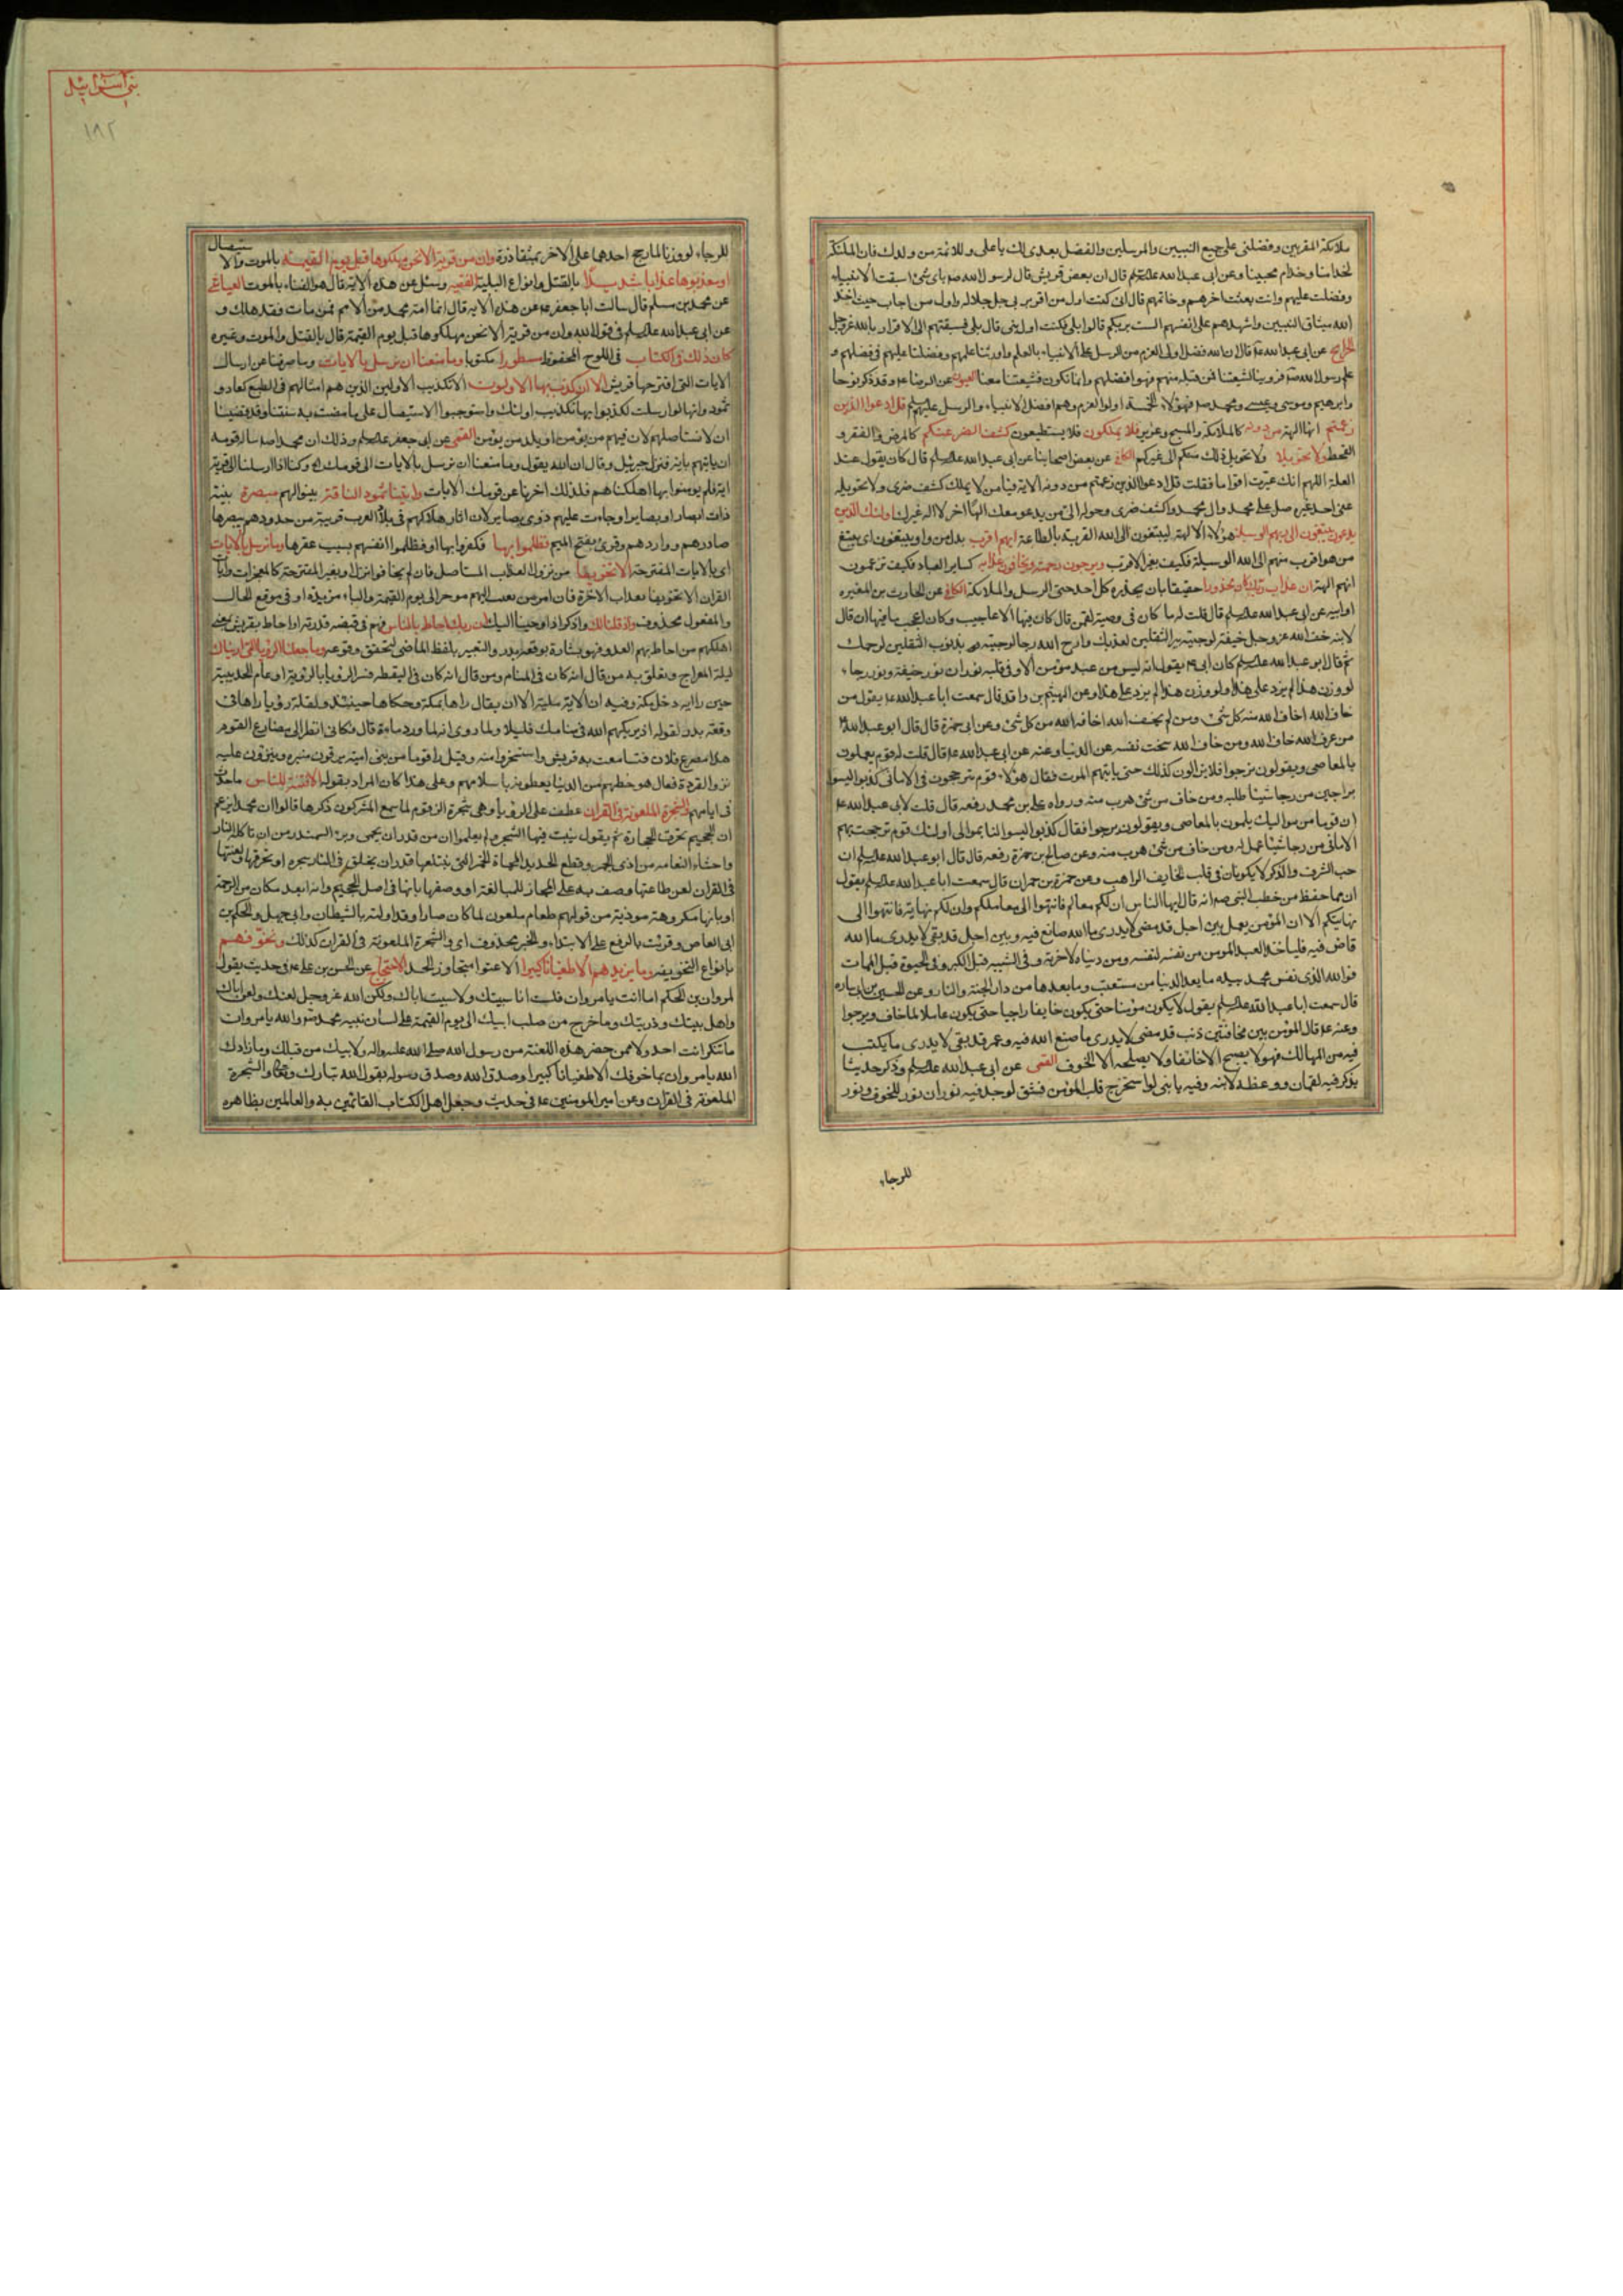 ملائكته المقربين وفضلنى على جميع النبيين والمرسلين والفضل بعدى لك يا على وللائمة من ولدك فان الملئكة
لخدامنا وخدام محبينا وعن ابى عبد الله قال ان بعض قريش قال لرسول الله باى شئ سبقت الانبياء
وفضلت عليهم وانت بعثت اخرهم وخاتمهم قال انى كنت اول من اقر بربى جل جلاله واول من اجاب حيث اخذ
الله ميثاق النبيين واشهدهم على انفسهم الست بربكم قالوا بلى فكنت اول نبى قال بلى فسبقتهم الى الاقرار بالله عز وجل
عن ابى عبد الله قال ان الله فضل اولى العزم من الرسل على الانبياء بالعلم واورثنا علمهم وفضلنا عليهم فى فضلهم و
وابرهيم وموسى وعيسى ومحمد فهؤلاء الخمسة اولوا العزم وهم افضل الانبياء والرسل عليهم قل ادعوا الذين
زعمتم انها الهة من دونه كالملائكة والمسيح وعزير فلا يملكون فلا يستطيعون كشف الضر عنكم كالمرض والفقر و
القحط ولا تحويلا ولا تحويل ذلك منكم الى غيركم عن بعض اصحابنا عن ابى عبد الله قال كان يقول عند
العلة اللهم انك عيرت اقواما فقلت قل ادعوا الذين زعمتم من دونه الاية فيا من لا يملك كشف ضرى ولا تحويله
عنى احد غيره صل على محمد وال محمد واكشف ضرى وحوله الى من يدعو معك الها اخر لا اله غيرك اولئك الذين
يدعون يبتغون الى ربهم الوسيلة هؤلاء الالهة يبتغون الى الله القربة بالطاعة ايهم اقرب بدل من واو يبتغون اى يبتغى
من هو اقرب منهم الى الله الوسيلة فكيف بغير الاقرب ويرجون رحمته ويخافون عذابه كساير العباد فكيف تزعمون
انهم الهة ان عذاب ربك كان محذورا حقيقا بان يحذره كل احد حتى الرسل والملائكة عن الحارث بن المغيره
او ابيه عن ابى عبد الله قال قلت له ما كان فى وصية لقمن قال كان فيها الاعاجيب وكان اعجب ما فيها ان قال
لابنه خف الله عز وجل خيفة لو جئته ببر الثقلين لعذبك وارج الله رجا لو جئته بذنوب الثقلين لرحمك
ثم قال ابو عبد الله كان ابى يقول انه ليس من عبد مؤمن الا وفى قلبه نوران نور خيفة ونور رجاء
لو وزن هذا لم يزد على هذا ولو وزن هذا لم يزد على هذا وعن الهيثم بن واقد قال سمعت ابا عبد الله يقول من
خاف الله اخاف الله منه كل شئ ومن لم يخف الله اخافه الله من كل شئ وعن ابى حمزة قال قال ابو عبد الله
من عرف الله خاف الله ومن خاف الله سخت نفسه عن الدنيا وعنه عن ابى عبد الله قال قلت له قوم يعملون
بالمعاصى ويقولون نرجوا فلا يزالون كذلك حتى ياتيهم الموت فقال هؤلاء قوم يترجحون فى الامانى كذبوا ليسوا
براجين من رجا شيئا طلبه ومن خاف من شئ هرب منه ورواه على بن محمد رفعه قال قلت لابى عبد الله
ان قوما من مواليك يلمون بالمعاصى ويقولون نرجوا فقال كذبوا ليسوا لنا بموالى اولئك قوم ترجحت بهم
الامانى من رجا شيئا عمل له ومن خاف من شئ هرب منه وعن صالح بن حمزة رفعه قال قال ابو عبد الله ان
حب الشرف والذكر لا يكونان فى قلب الخايف الراهب وعن حمزة بن حمران قال سمعت ابا عبد الله يقول
ان مما حفظ من خطب النبى انه قال ايها الناس ان لكم معالم فانتهوا الى معالمكم وان لكم نهاية فانتهوا الى
نهايتكم الا ان المؤمن يعمل بين اجل قد مضى لا يدرى ما الله صانع فيه وبين اجل قد بقى لا يدرى ما الله
قاض فيه فلياخذ العبد المومن من نفسه لنفسه ومن دنياه لاخرته وفى الشيبة قبل الكبر وفى الحيوة قبل الممات
فوالله الذى نفس محمد بيده ما بعد الدنيا من مستعتب وما بعدها من دار الا الجنة والنار وعن الحسين بن ابى ساره
قال سمعت ابا عبد الله يقول لا يكون مؤمنا حتى يكون خايفا راجيا حتى يكون عاملا لما خاف ويرجوا
وعنه قال المؤمن بين مخافتين ذنب قد مضى لا يدرى ما صنع الله فيه وعمر قد بقى لا يدرى ما يكتب
فيه من المهالك فهو لا يصبح الا خائفا ولا يصلحه الا الخوف القمى عن ابى عبد الله وذكر حديثا
يذكر فيه لقمان ووعظه لابنه وفيه يا بنى لو استخرج قلب المؤمن فشق لوجد فيه نوران نور للخوف ونور
للرجاء
بنى اسرائيل
١٨٢
للرجاء لو وزنا لما رجح احدهما على الاخر بمثقال ذرة وان من قرية الا نحن مهلكوها قبل يوم القيمة بالموت والا
ستيصال
او معذبوها عذابا شديدا بالقتل وانواع البلية الفقيه وسئل عن هذه الاية قال هو الفناء بالموت العياشى
عن محمد بن مسلم قال سالت ابا جعفر عن هذه الاية قال انما امة محمد من الامم فمن مات فقد هلك و
عن ابى عبد الله فى قول الله وان من قرية الا نحن مهلكوها قبل يوم القيمة قال بالقتل والموت وغيره
كان ذلك فى الكتاب فى اللوح المحفوظ مسطورا مكتوبا وما منعنا ان نرسل بالايات وما صرفنا عن ارسال
الايات التى اقترحها قريش الا ان كذب بها الاولون الا تكذيب الاولين الذين هم امثالهم فى الطبع كعاد و
ثمود وانها لو ارسلت لكذبوا بها تكذيب اولئك واستوجبوا الاستيصال على ما مضت به سنتنا وقد قضينا
ان لا نستاصلهم لان فيهم من يؤمن او يلد من يؤمن القمى عن ابى جعفر وذلك ان محمدا سال قومه
ان ياتيهم باية فنزل جبرئيل وقال ان الله يقول وما منعنا ان نرسل بالايات الى قومك وكنا اذا ارسلنا الى قرية
اية فلم يومنوا بها اهلكناهم فلذلك اخرنا عن قومك الايات واتينا ثمود الناقة بسؤالهم مبصرة بينة
ذات ابصار او بصاير او جاعلتهم ذوى بصاير لان اثار هلاكهم فى بلاد العرب قريبة من حدودهم يبصرها
صادرهم وواردهم وقرئ بفتح الميم فظلموا بها فكفروا بها او فظلموا انفسهم بسبب عقرها وما نرسل بالايات
اى بالايات المقترحة الا تخويفا من نزول العذاب المستاصل فان لم يخافوا نزل او بغير المقترحة كالمعجزات وايات
القران الا تخويفا بعذاب الاخرة فان امر من بعثت اليهم موخر الى يوم القيمة والباء مزيدة او فى موقع الحال
والمفعول محذوف واذ قلنا لك واذكر اذ اوحينا اليك ان ربك احاط بالناس فهم فى قبضة قدرته او احاط بقريش بمعنى
اهلكهم من احاط بهم العدو فهو بشارة بوقعة بدر والتعبير بلفظ الماضى لتحقق وقوعه وما جعلنا الرؤيا التى اريناك
ليلة المعراج وتعلق به من قال انه كان فى المنام ومن قال انه كان فى اليقظة فسر الرؤيا بالرؤية او عام الحديبية
حين راى انه دخل مكة وفيه ان الاية مكية الا ان يقال راها بمكة وحكاها حينئذ ولعله رؤيا راها فى
وقعة بدر لقوله اذ يريكهم الله فى منامك قليلا ولما روى انه لما ورد ماءه قال فكانى انظر الى مصارع القوم
هذا مصرع فلان فتسامعت به قريش واستسخروا منه وقيل راى قوما من بنى امية يرقون منبره وينزون عليه
نزو القردة فقال هو حظهم من الدنيا يعطونه باسلامهم وعلى هذا كان المراد بقوله الا فتنة للناس ما حدث
فى ايامهم والشجرة الملعونة فى القران عطف على الرؤيا وهى شجرة الزقوم لما سمع المشركون ذكرها قالوا ان محمدا يزعم
ان الجحيم تحرق الحجارة ثم يقول ينبت فيها الشجر ولم يعلموا ان من قدر ان يحمى وبر السمندر من ان تاكله النار
واحشاء النعامة من اذى الجمر وقطع الحديد المحماة الحمر التى يبتلعها قدر ان يخلق فى النار شجرة لا تحرقها ولعنها
فى القران لعن طاعمها وصفت به على المجاز للمبالغة او وصفها بانها فى اصل الجحيم وانه ابعد مكان من الرحمة
او بانها مكروهة موذية من قولهم طعام ملعون لما كان ضارا وقد اولت بالشيطان وابى جهل والحكم بن
ابى العاص وقرئت بالرفع على الابتداء والخبر محذوف اى والشجرة الملعونة فى القران كذلك ونخوفهم
بانواع التخويف فما يزيدهم الا طغيانا كبيرا الا عتوا متجاوز الحد الاحتجاج عن الحسن بن على فى حديث يقول
لمروان بن الحكم اما انت يا مروان فلست انا سببتك ولا سببت اباك ولكن الله عز وجل لعنك ولعن اباك
واهل بيتك وذريتك وما خرج من صلب ابيك الى يوم القيمة على لسان نبيه محمد والله يا مروان
ما تنكر انت احد ولا ممن حضر هذه اللعنة من رسول الله صلى الله عليه واله ولابيك من قبلك وما زادك
الله يا مروان بما خوفك الا طغيانا كبيرا وصدق الله وصدق رسوله يقول الله تبارك وتعالى والشجرة
الملعونة فى القران وعن امير المومنين فى حديث وجعل اهل الكتاب القائمين به والعالمين بظاهره